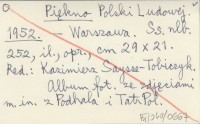 Piękno Polski Ludowej.
1952. — Warszawa. Ss. nlb.
252, il., opr., cm 29 x 21.
Red.: Kazimierz Saysse-Tobiczyk.
Album fot. ze zdjęciami
m.in. z Podhala i Tatr Pol.